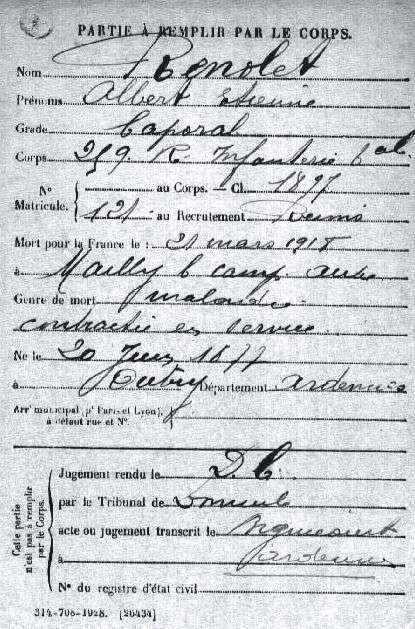 PARTIE À REMPLIR PAR LE CORPS.
Nom Renolet
Prénoms Albert Etienne
Grade Caporal
Corps 259. R. Infanterie
N° Matricule. { au Corps. — Cl. 1897
121 au Recrutement Reims
Mort pour la France le : 21 mars 1918
à Mailly le camp aube
Genre de mort maladie
contractée en service
Né le 20 Juin 1877
à Autry Département ardennes
Arrt municipal (pr Paris et Lyon), à défaut rue et N°.
Cette partie n'est pas à remplir par le Corps.
Jugement rendu le D. C.
par le Tribunal de
acte ou jugement transcrit le
à ardennes
N° du registre d'état civil
314-708-1928. [26434]